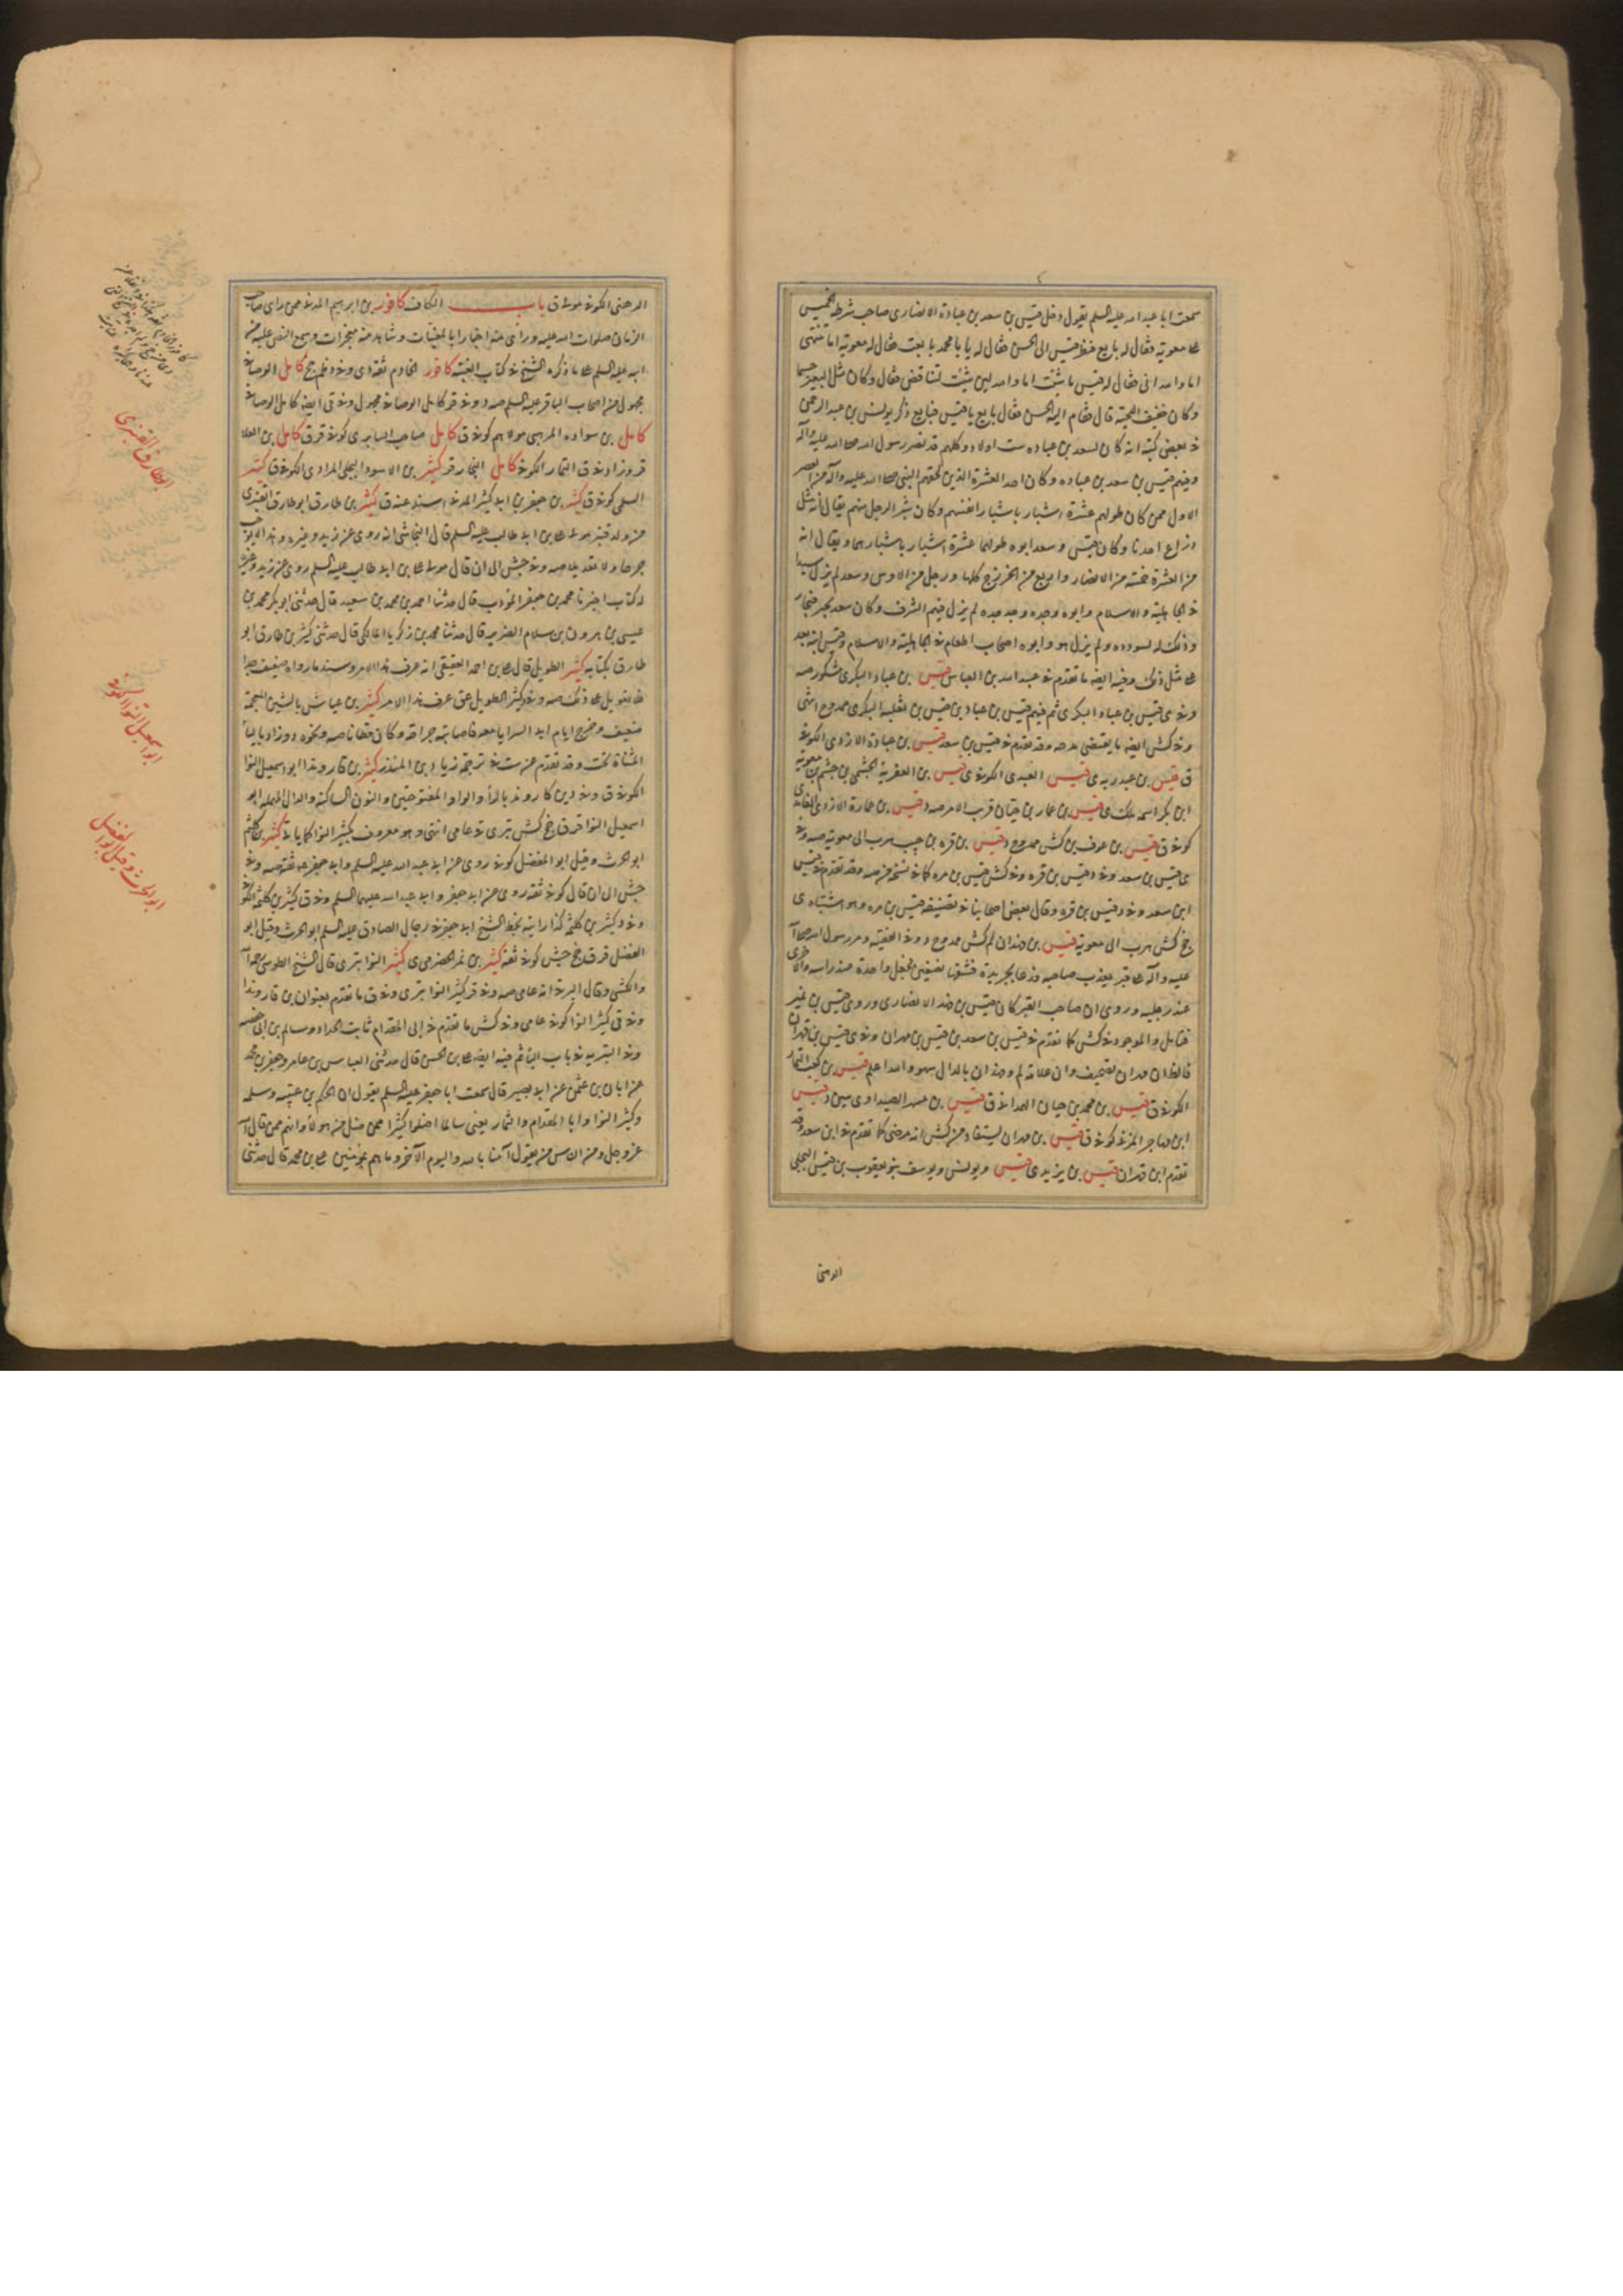 سمعت ابا عبد الله عليه السلم يقول دخل قيس بن سعد بن عبادة الانصاری صاحب شرطة الخميس
علی معوية فقال له بايع فنظر قيس الی الحسن فقال له يا با محمد بايعت فقال له معوية اما تنتهی
اما والله انی فقال له قيس ما شئت اما والله لئن شئت لتناقض فقال وكان مثل البعير جسيما
وكان خفيف اللحية قال فقام اليه الحسن فقال بايع يا قيس فبايع ذكر يونس بن عبد الرحمن
فی بعض كتبه انه كان لسعد بن عباده ست اولاد وكلهم قد نصر رسول الله صلی الله عليه وآله
وفيهم قيس بن سعد بن عباده وكان احد العشرة الذين لحقهم النبی صلی الله عليه وآله من العصر
الاول ممن كان طولهم عشرة اشبار باشبار انفسهم وكان شبر الرجل منهم يقال انه مثل
ذراع احدنا وكان قيس وسعد ابوه طولهما عشرة اشبار باشبارهما ويقال انه
من العشرة خمسة من الانصار واربع من الخزرج كلها ورجل من الاوس وسعد لم يزل سيدا
فی الجاهلية والاسلام وابوه وجده وجد جده لم يزل فيهم الشرف وكان سعد يجير فيجار
وذلك له لسودده ولم يزل هو وابوه اصحاب اطعام فی الجاهلية والاسلام وقيس ابنه بعد
علی مثل ذلك وفيه ايضه ما تقدم فی عبد الله بن العباس قيس بن عباد البكری مشكور صه
وفی ی قيس بن عباد البكری ثم فيهم قيس بن عباد بن قيس بن ثعلبه البكری ممدوح انتهی
وفی كش ايضه ما يقتضی مدحه وقد تقدم فی قيس بن سعد قيس بن عبادة الازدی الكوفی
ق قيس بن عبد ربه ی قيس العبدی الكوفی ی قيس بن العقرية الجشمی بن جشم بن معوية
ابن بكر اسمه ملك ی قيس بن عمار بن حيان قريب الامر صه د قيس بن عمارة الازدی الغامدی
كوفی ق قيس بن عوف بن كش ممدوح د قيس بن قره بن حبيب هرب الی معوية صه وفی
ی قيس بن سعد وفی د قيس بن قره وفی كش قيس بن مره كما فی نسخة من صه وقد تقدم فی قيس
ابن سعد وفی د قيس بن قره وقال بعض اصحابنا فی تصنيفه قيس بن مره وهو اشتباه ی
جخ كش هرب الی معوية قيس بن فهدان لم كش ممدوح د وفی الفقيه ومر رسول الله صلی الله
عليه وآله علی قبر يعذب صاحبه فدعا بجريدة فشقها نصفين فجعل واحدة عند راسه والاخری
عند رجليه وروی ان صاحب القبر كان قيس بن فهد الانصاری وروی قيس بن نمير
فتامل والموجود فی كش كما تقدم فی قيس بن سعد بن قيس بن مهران وفی ی قيس بن قهدان
فالظ ان مهران تصحيف وان علامة لم وفهدان بالدال سهو والله اعلم قيس بن كعب التمار
الكوفی ق قيس بن محمد بن حيان الهمدانی ق قيس بن مسهر الصيداوی سين د قيس
ابن مهاجر المزنی كوفی ق قيس بن مهران يستفاد من كش انه مرضی كما تقدم فی ابن سعد وقد
تقدم ابن قهران قيس بن يزيد ی قيس ويونس ويوسف بنو يعقوب بن قيس البجلی
الدهنی
الدهنی الكوفی مولی ق باب الكاف كافور بن ابرهيم المدنی ممن رای صاحب
الزمان صلوات الله عليه وروی عنه اخبارا بالمغيبات وشاهد منه معجزات وسمع النص عليه من
ابيه عليه السلم علی ما ذكره الشيخ فی كتاب الغيبة كافور الخادم ثقة دی وفی د ظم جخ كامل الوصافی
مجهول من اصحاب الباقر عليه السلم صه د وفی قر كامل الوصافی مجهول وفی ق ايضه كامل الوصافی
كامل بن سواده المرهبی مولاهم كوفی ق كامل صاحب السابری كوفی قر ق كامل بن العلا
قر وزاد فی ق التمار الكوفی كامل النجار قر كثير بن الاسود البجلی المرادی الكوفی ق كثير
السلمی كوفی ق كثير بن جعفر بن ابی كثير المدنی اسند عنه ق كثير بن طارق ابو طارق القنبری
من ولد قنبر مولی علی بن ابی طالب عليه السلم قال النجاشی انه روی عن زيد وغيره وهذا لا يوجب
جرحا ولا تعديلا صه وفی جش الی ان قال مولی علی بن ابی طالب عليه السلم روی عن زيد وغيره
له كتاب اخبرنا محمد بن جعفر المؤدب قال حدثنا احمد بن محمد بن سعيد قال حدثنی ابو بكر محمد بن
عيسی بن هرون بن سلام الضرير قال حدثنا محمد بن زكريا المالكی قال حدثنی كثير بن طارق ابو
طارق بكتابه كثير الطويل قال علی بن احمد العقيقی انه عرف هذا الامر وسند ما رواه ضعيف جدا
فلا تعويل علی ذلك صه وفی د كثير الطويل عق عرف هذا الامر كثير بن عياش بالشين المعجمة
ضعيف وخرج ايام ابی السرايا معه فاصابته جراحة وكان قطانا صه ونحوه د وزاد بالياء
المثناة تحت وقد تقدم من ست فی ترجمة زياد بن المنذر كثير بن قاروند ابو اسمعيل النوا
الكوفی ق وفی د بن كاروند بالراء والواو المفتوحتين والنون الساكنة والدال المهملة ابو
اسمعيل النوا قر ق جخ كش بتری ق عامی انتهی وهو معروف بكثير النوا كما يا تی كثير بن كلثم
ابو الحرث وقيل ابو الفضل كوفی روی عن ابی عبد الله عليه السلم وابی جعفر عه ثقة صه وفی
جش الی ان قال كوفی ثقه روی عن ابی جعفر وابی عبد الله عليهما السلم وفی ق كثير بن كلثمة الكوفی
وفی د كثير بن كلثمة كذا رايته بخط الشيخ ابی جعفر فی رجال الصادق عليه السلم ابو الحرث وقيل ابو
الفضل قر ق جخ جش كوفی ثقة كثير بن نمر الحضرمی ی كثير النوا بتری قال الشيخ الطوسی رحمه الله
والكشی وقال البرقی انه عامی صه وفی قر كثير النوا بتری وفی ق ما تقدم بعنوان بن قاروندا
وفی قی كثير النوا كوفی عامی وفی كش ما تقدم فی ابی المقدام ثابت الحداد وسالم بن ابی حفصه
وفی البترية فی باب التا ثم فيه ايضه علی بن الحسن قال حدثنی العباس بن عامر وجعفر بن محمد
عن ابان بن عثمن عن ابی بصير قال سمعت ابا جعفر عليه السلم يقول ان الحكم بن عتيبه وسلمه
وكثير النوا وابا المقدام والتمار يعنی سالما اضلوا كثيرا ممن ضل من هولاء وانهم ممن قال الله
عز وجل ومن الناس من يقول آمنا بالله واليوم الآخر وما هم بمومنين علی بن محمد قال حدثنی
ابو طارق القنبری
ابو اسمعيل النوا الكوفی
ابو الحرث وقيل ابو الفضل